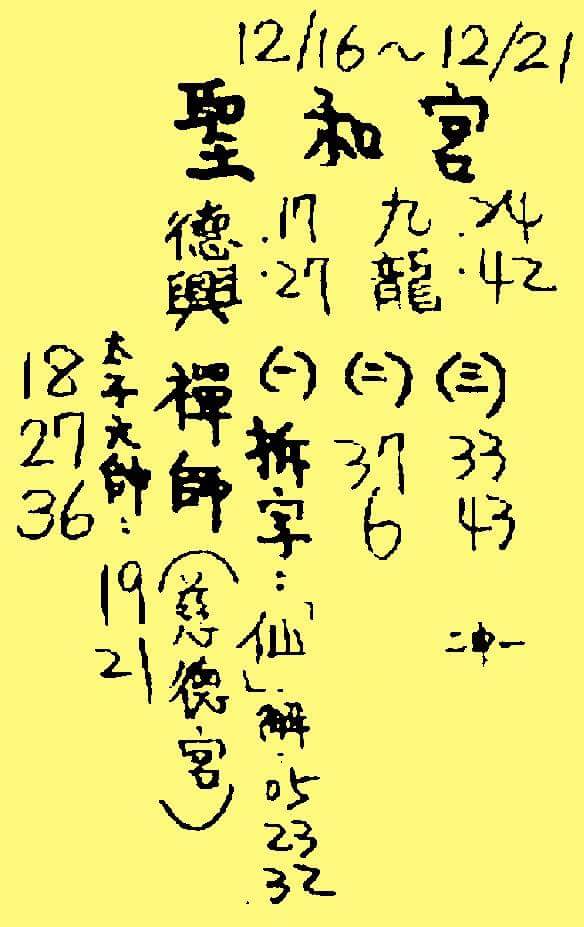 12/16～12/21
聖和宮
德興 .17 .27
九龍 .24 .42
禪師(慈德宮)
太子元帥：19 21
18
27
36
(一)拆字：「仙」解.05 23 .32
(二) 37 6
(三) 33 43
二中一